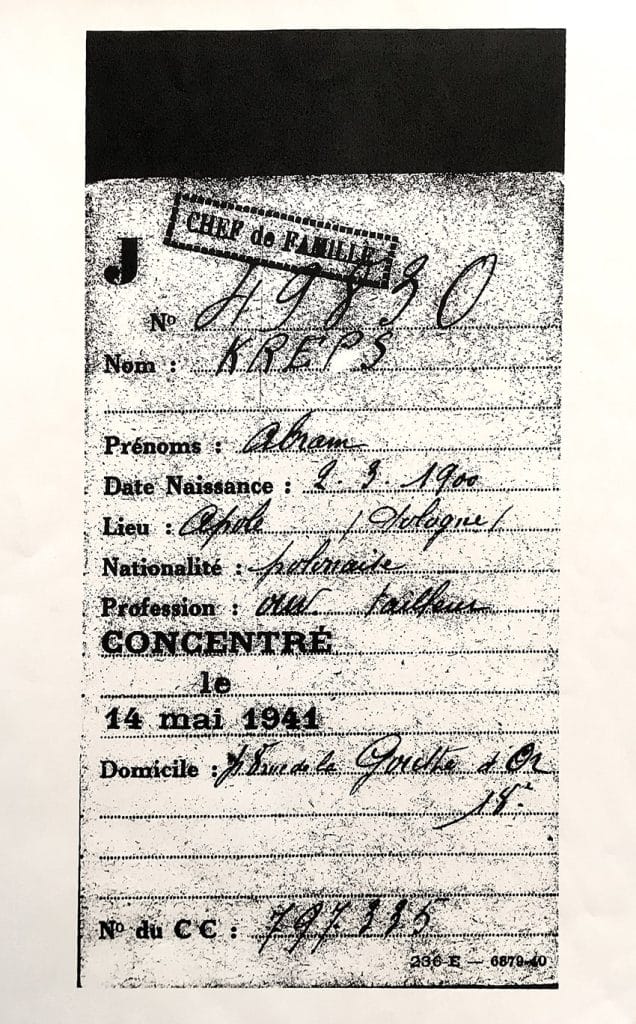 CHEF de FAMILLE
J
No 49830
Nom : KREPS
Prénoms : Abram
Date Naissance : 2.3.1900
Lieu : Opole /Pologne/
Nationalité : polonaise
Profession : ouv. tailleur
CONCENTRÉ
le
14 mai 1941
Domicile : rue de la Goutte d'Or
18e
No du CC : 797335
236 E — 6879-40